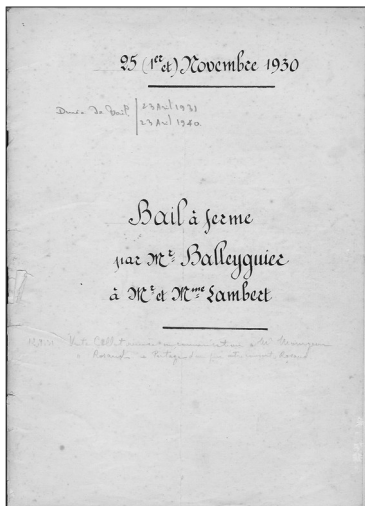 25 (1er et) Novembre 1930
Durée du bail 23 Avl 1931
23 Avl 1940.
Bail à ferme
par Mr. Balleyguier
à Mr. et Mme Lambert